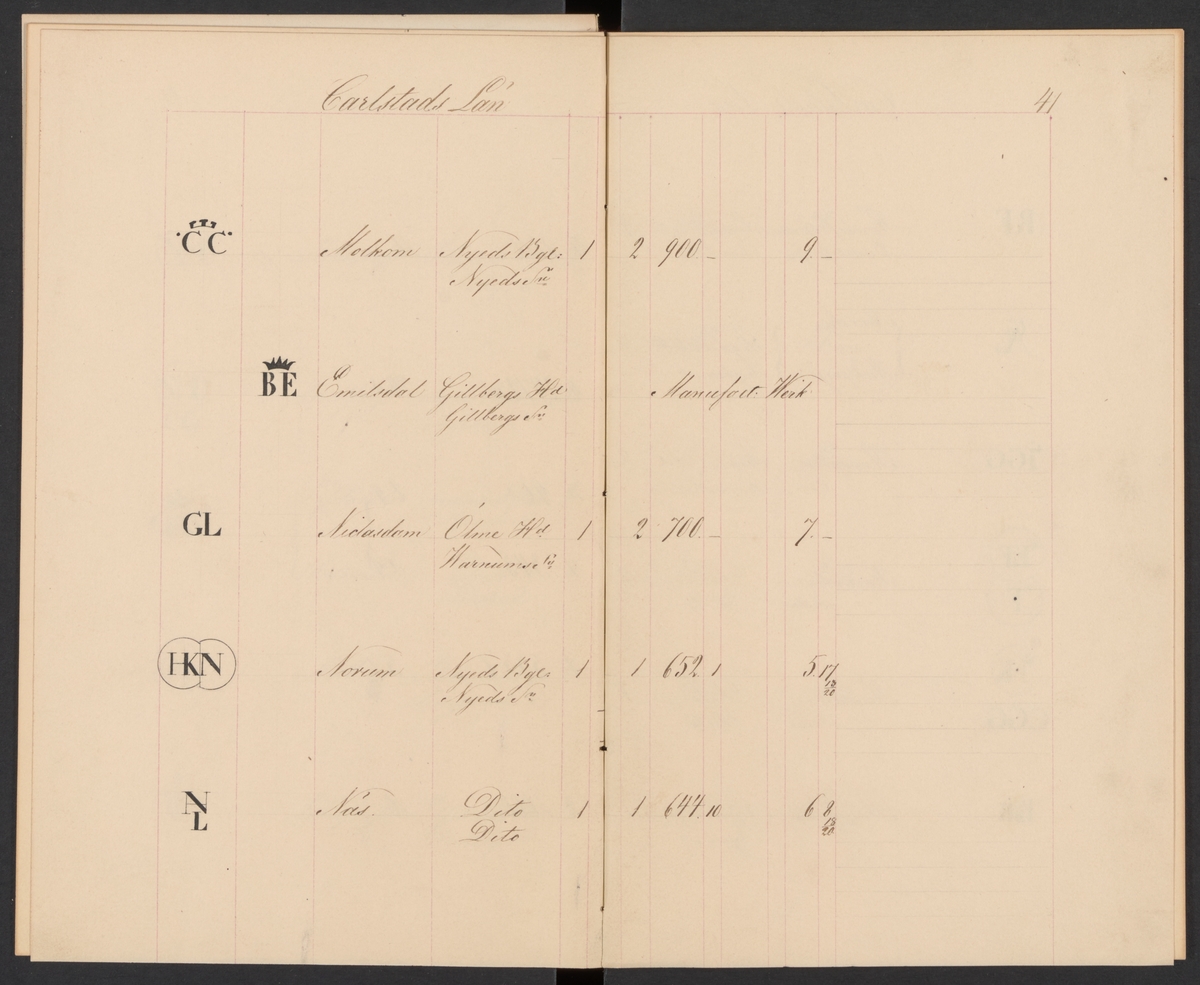 Carlstads Län 41
·CC· Molkom Nyeds Bgl: 1 2 900 – 9. –
Nyeds Sn
BE Emilsdal Gillbergs Hd Manufact: Werk
Gillbergs Sn
GL Niclasdam Ölme Hd 1 2 700. – 7. –
Warnums Sn
HKN Norum Nyeds Bgl: 1 1 652. 1 5. 17
Nyeds Sn 18/20
NL Näs. Dito 1 1 644. 10 6 8
Dito 18/20